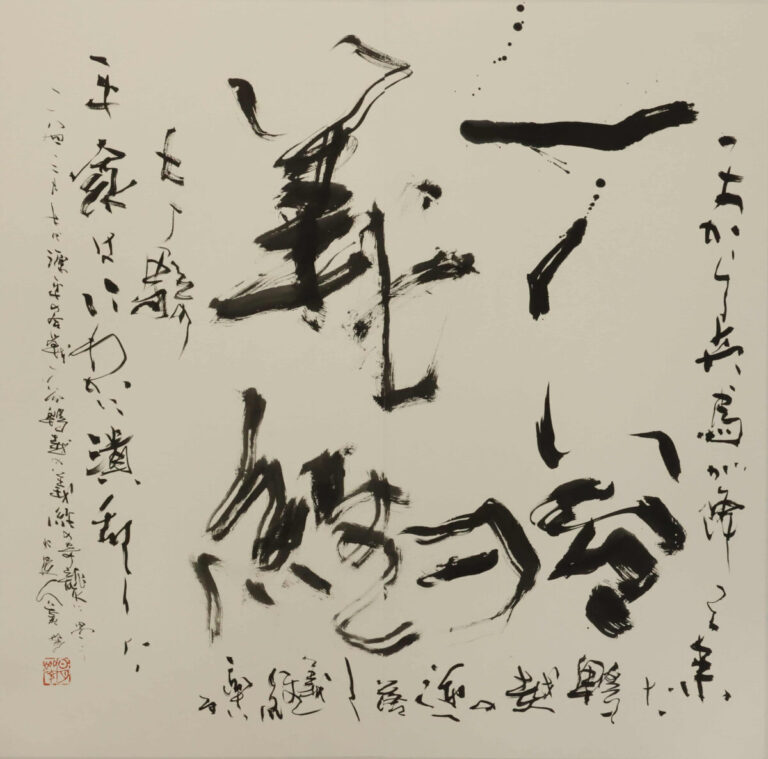 一ノ谷の
義経
天から兵馬が降って来た
鵯越の逆落し義経
七十騎
平家はにわかに潰乱した
一一八四 二月七日源平の合戦一ノ谷鵯越の義経の奇襲